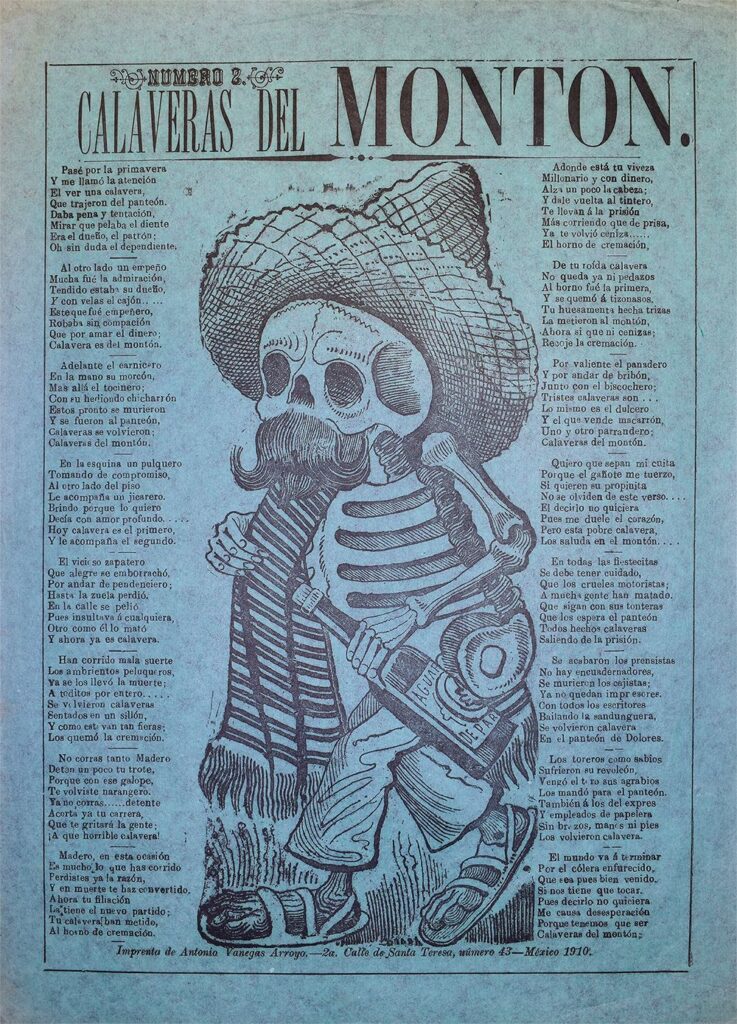 NUMERO 2.
CALAVERAS DEL MONTON.
Pasé por la primavera
Y me llamó la atención
El ver una calavera,
Que trajeron del panteón.
Daba pena y tentación,
Mirar que pelaba el diente
Era el dueño, el patrón;
Oh sin duda el dependiente,
Al otro lado un empeño
Mucha fué la admiración,
Tendido estaba su dueño,
Y con velas el cajón.. ...
Este que fué empeñero,
Robaba sin compación
Que por amar el dinero;
Calavera es del montón.
Adelante el carnicero
En la mano su morcón,
Mas allá el tocinero;
Con su hediondo chicharrón
Estos pronto se murieron
Y se fueron al panteón,
Calaveras se volvieron;
Calaveras del montón.
En la esquina un pulquero
Tomando de compromiso,
Al otro lado del piso
Le acompaña un jicarero.
Brindo porque lo quiero
Decía con amor profundo. . . .
Hoy calavera es el primero,
Y le acompaña el segundo.
El vicioso zapatero
Que alegre se emborrachó,
Por andar de pendenciero;
Hasta la zuela perdió,
En la calle se pelió
Pues insultava á cualquiera,
Otro como él lo mató
Y ahora ya es calavera.
Han corrido mala suerte
Los ambrientos peluqueros,
Ya se los llevó la muerte;
A toditos por entero. . . . .
Se volvieron calaveras
Sentados en un sillón,
Y como estavan tan fieras;
Los quemó la cremación.
No corras tanto Madero
Deten un poco tu trote,
Porque con ese galope,
Te volviste narangero.
Ya no corras......detente
Acorta ya tu carrera,
Que te gritará la gente;
¡A que horrible calavera!
Madero, en esta ocasión
Es mucho lo que has corrido
Perdistes ya la razón,
Y en muerte te haz convertido,
Ahora tu filiación
La tiene el nuevo partido;
Tu calavera han metido,
Al horno de cremación.
AGUAR
DE PAR
Adonde está tu viveza
Millonario y con dinero,
Alza un poco la cabeza;
Y dale vuelta al tintero,
Te llevan á la prisión
Más corriendo que de prisa,
Ya te volvió ceniza......
El horno de cremación,
De tu roída calavera
No queda ya ni pedazos
Al horno fué la primera,
Y se quemó á tizonasos,
Tu huesamenta hecha trizas
La metieron al montón,
Ahora si que ni cenizas;
Recoje la cremación.
Por valiente el panadero
Y por andar de bribón,
Junto con el biscochero;
Tristes calaveras son . . .
Lo mismo es el dulcero
Y el que vende macarrón,
Uno y otro parrandero;
Calaveras del montón.
Quiero que sepan mi cuita
Porque el gañote me tuerzo,
Si quieren su propinita
No se olviden de este verso. . . .
El decirlo no quiciera
Pues me duele el corazón,
Pero esta pobre calavera,
Los saluda en el montón. . . .
En todas las fiestecitas
Se debe tener cuidado,
Que los crueles motoristas;
A mucha gente han matado.
Que sigan con sus tonteras
Que los espera el panteón
Todos hechos calaveras
Saliendo de la prisión.
Se acabaron los prensistas
No hay encuadernadores,
Se murieron los cajistas;
Ya no quedan impresores.
Con todos los escritores
Bailando la sandunguera,
Se volvieron calavera
En el panteón de Dolores.
Los toreros como sabios
Sufrieron su revolcón,
Vengó el toro sus agrabios
Los mandó para el panteón.
También á los del expres
Y empleados de papelera
Sin brazos, manos ni pies
Los volvieron calavera.
El mundo va á terminar
Por el cólera enfurecido,
Que sea pues bien venido.
Si nos tiene que tocar,
Pues decirlo no quiciera
Me causa desesperación
Porque tenemos que ser
Calaveras del montón;
Imprenta de Antonio Vanegas Arroyo.—2a. Calle de Santa Teresa, número 43—México 1910.